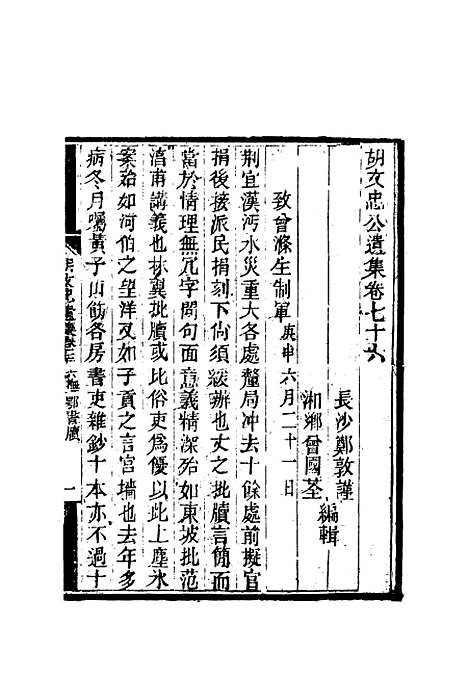 胡文忠公遺集卷七十六
長沙鄭敦謹
湘鄉曾國荃
編輯
致曾滌生制軍庚申六月二十一日
荆宜漢沔水災重大各處釐局冲去十餘處前擬官
捐後接派民捐刻下尙須緩辦也丈之批牘言簡而
當於情理無冗字閒句面意義精深殆如東坡批范
滔甫講義也林翼批牘或比俗吏爲優以此上塵氷
案殆如河伯之望洋又如子貢之言宮墻也去年多
病冬月囑黃子山飭各房書吏雜鈔十本亦不過十
胡文忠遺集卷七十六 撫鄂書牘 一